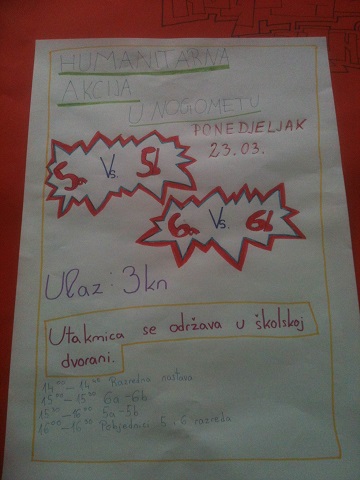 HUMANITARNA
AKCIJA
U NOGOMETU
PONEDJELJAK
23.03.
5a Vs. 5d
6a Vs. 6d
Ulaz: 3kn
Utakmica se održava u školskoj
dvorani.
14⁰⁰-14⁴⁵ Razredna nastava
15⁰⁰-15³⁰ 6a-6b
15³⁰-16⁰⁰ 5a-5b
16⁰⁰-16³⁰ Pobjednici 5 i 6 razreda